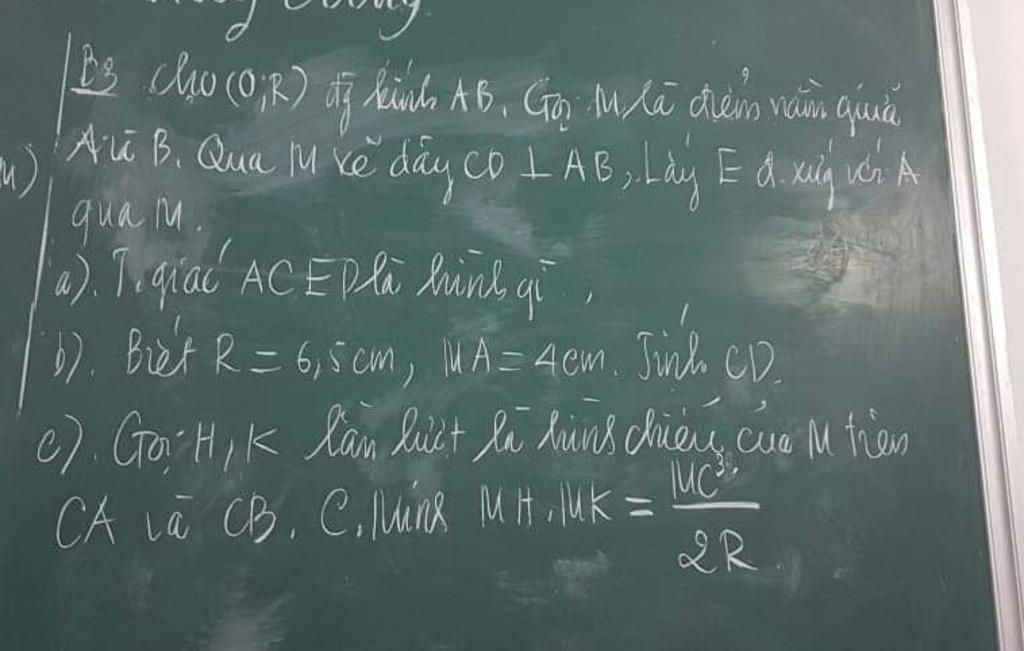 B3 Cho (O;R) đg kính AB. Gọi M là điểm nằm giữa
A và B. Qua M kẽ dây CD ⊥ AB, Lấy E đ.xứg với A
qua M.
a). T.giác ACED là hình gì,
b). Biết R = 6,5cm, MA = 4cm. Tính CD.
c). Gọi H, K lần lượt là hình chiếu của M trên
CA và CB. C.Minh MH.MK = MC³/2R